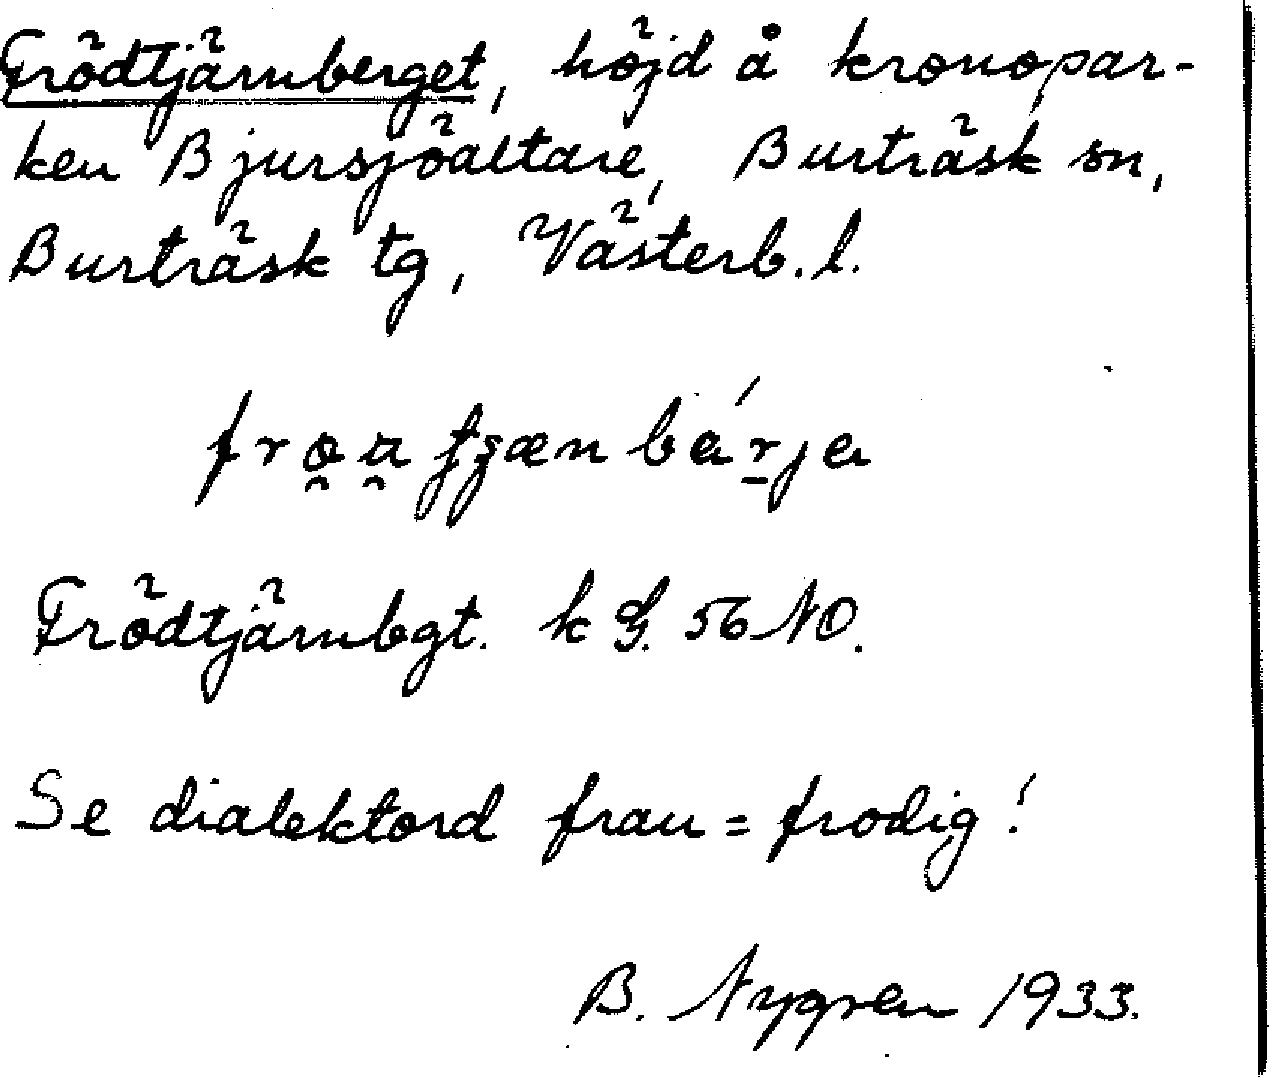 Frödtjärnberget, höjd å kronopar-
ken Bjursjöaltare, Burträsk sn,
Burträsk tg, Västerb. l.
Frödtjärnbgt. k G. 56 NO.
Se dialektord frau = frodig!
B. Nygren 1933.